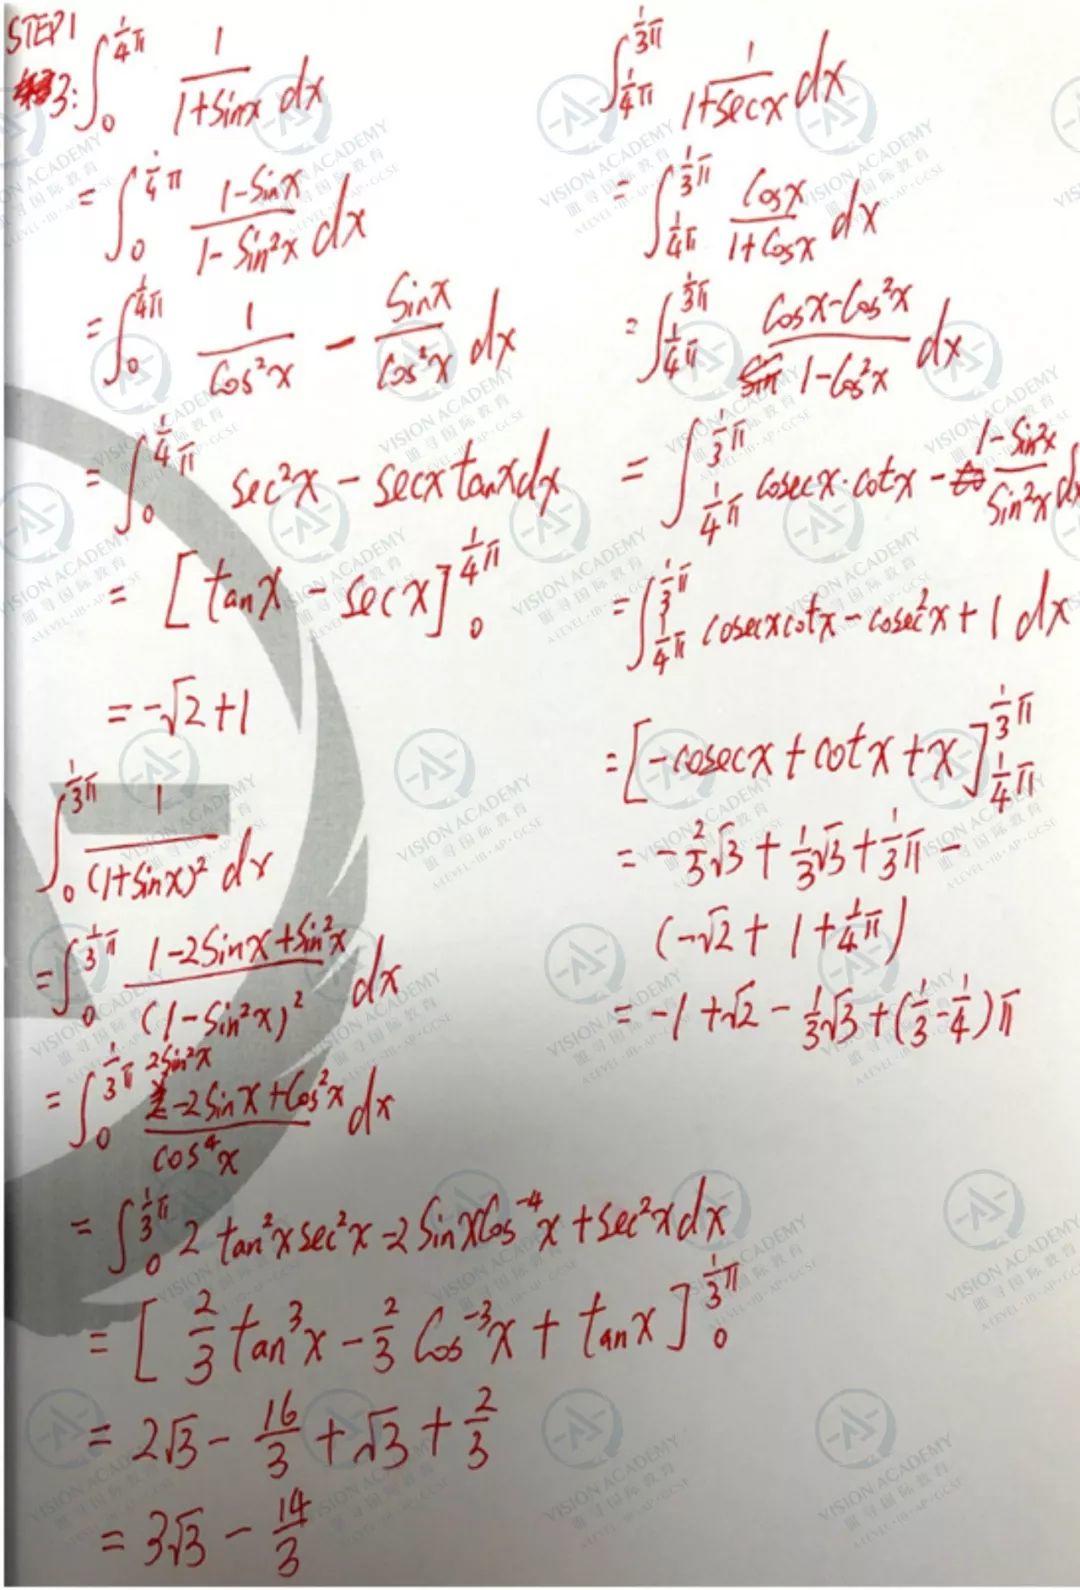 STEP1
3: ∫₀^{¼π} 1/(1+sinx) dx
= ∫₀^{¼π} (1-sinx)/(1-sin²x) dx
= ∫₀^{¼π} 1/cos²x - sinx/cos²x dx
= ∫₀^{¼π} sec²x - secx tanx dx
= [tanx - secx]₀^{¼π}
= -√2+1
∫₀^{⅓π} 1/(1+sinx)² dx
= ∫₀^{⅓π} (1-2sinx+sin²x)/(1-sin²x)² dx
= ∫₀^{⅓π} (2sin²x-2sinx+cos²x)/cos⁴x dx
= ∫₀^{⅓π} 2tan²x sec²x - 2sinxcos⁻⁴x + sec²x dx
= [⅔tan³x - ⅔cos⁻³x + tanx]₀^{⅓π}
= 2√3 - 16/3 + √3 + 2/3
= 3√3 - 14/3
∫_{¼π}^{⅓π} 1/(1+secx) dx
= ∫_{¼π}^{⅓π} cosx/(1+cosx) dx
= ∫_{¼π}^{⅓π} (cosx-cos²x)/(1-cos²x) dx
= ∫_{¼π}^{⅓π} cosecx·cotx - (1-sin²x)/sin²x dx
= ∫_{¼π}^{⅓π} cosecxcotx - cosec²x + 1 dx
= [-cosecx + cotx + x]_{¼π}^{⅓π}
= -⅔√3 + ⅓√3 + ⅓π -
(-√2 + 1 + ¼π)
= -1 + √2 - ⅓√3 + (⅓-¼)π
VISION ACADEMY
唯寻国际教育
A-LEVEL·IB·AP·GCSE